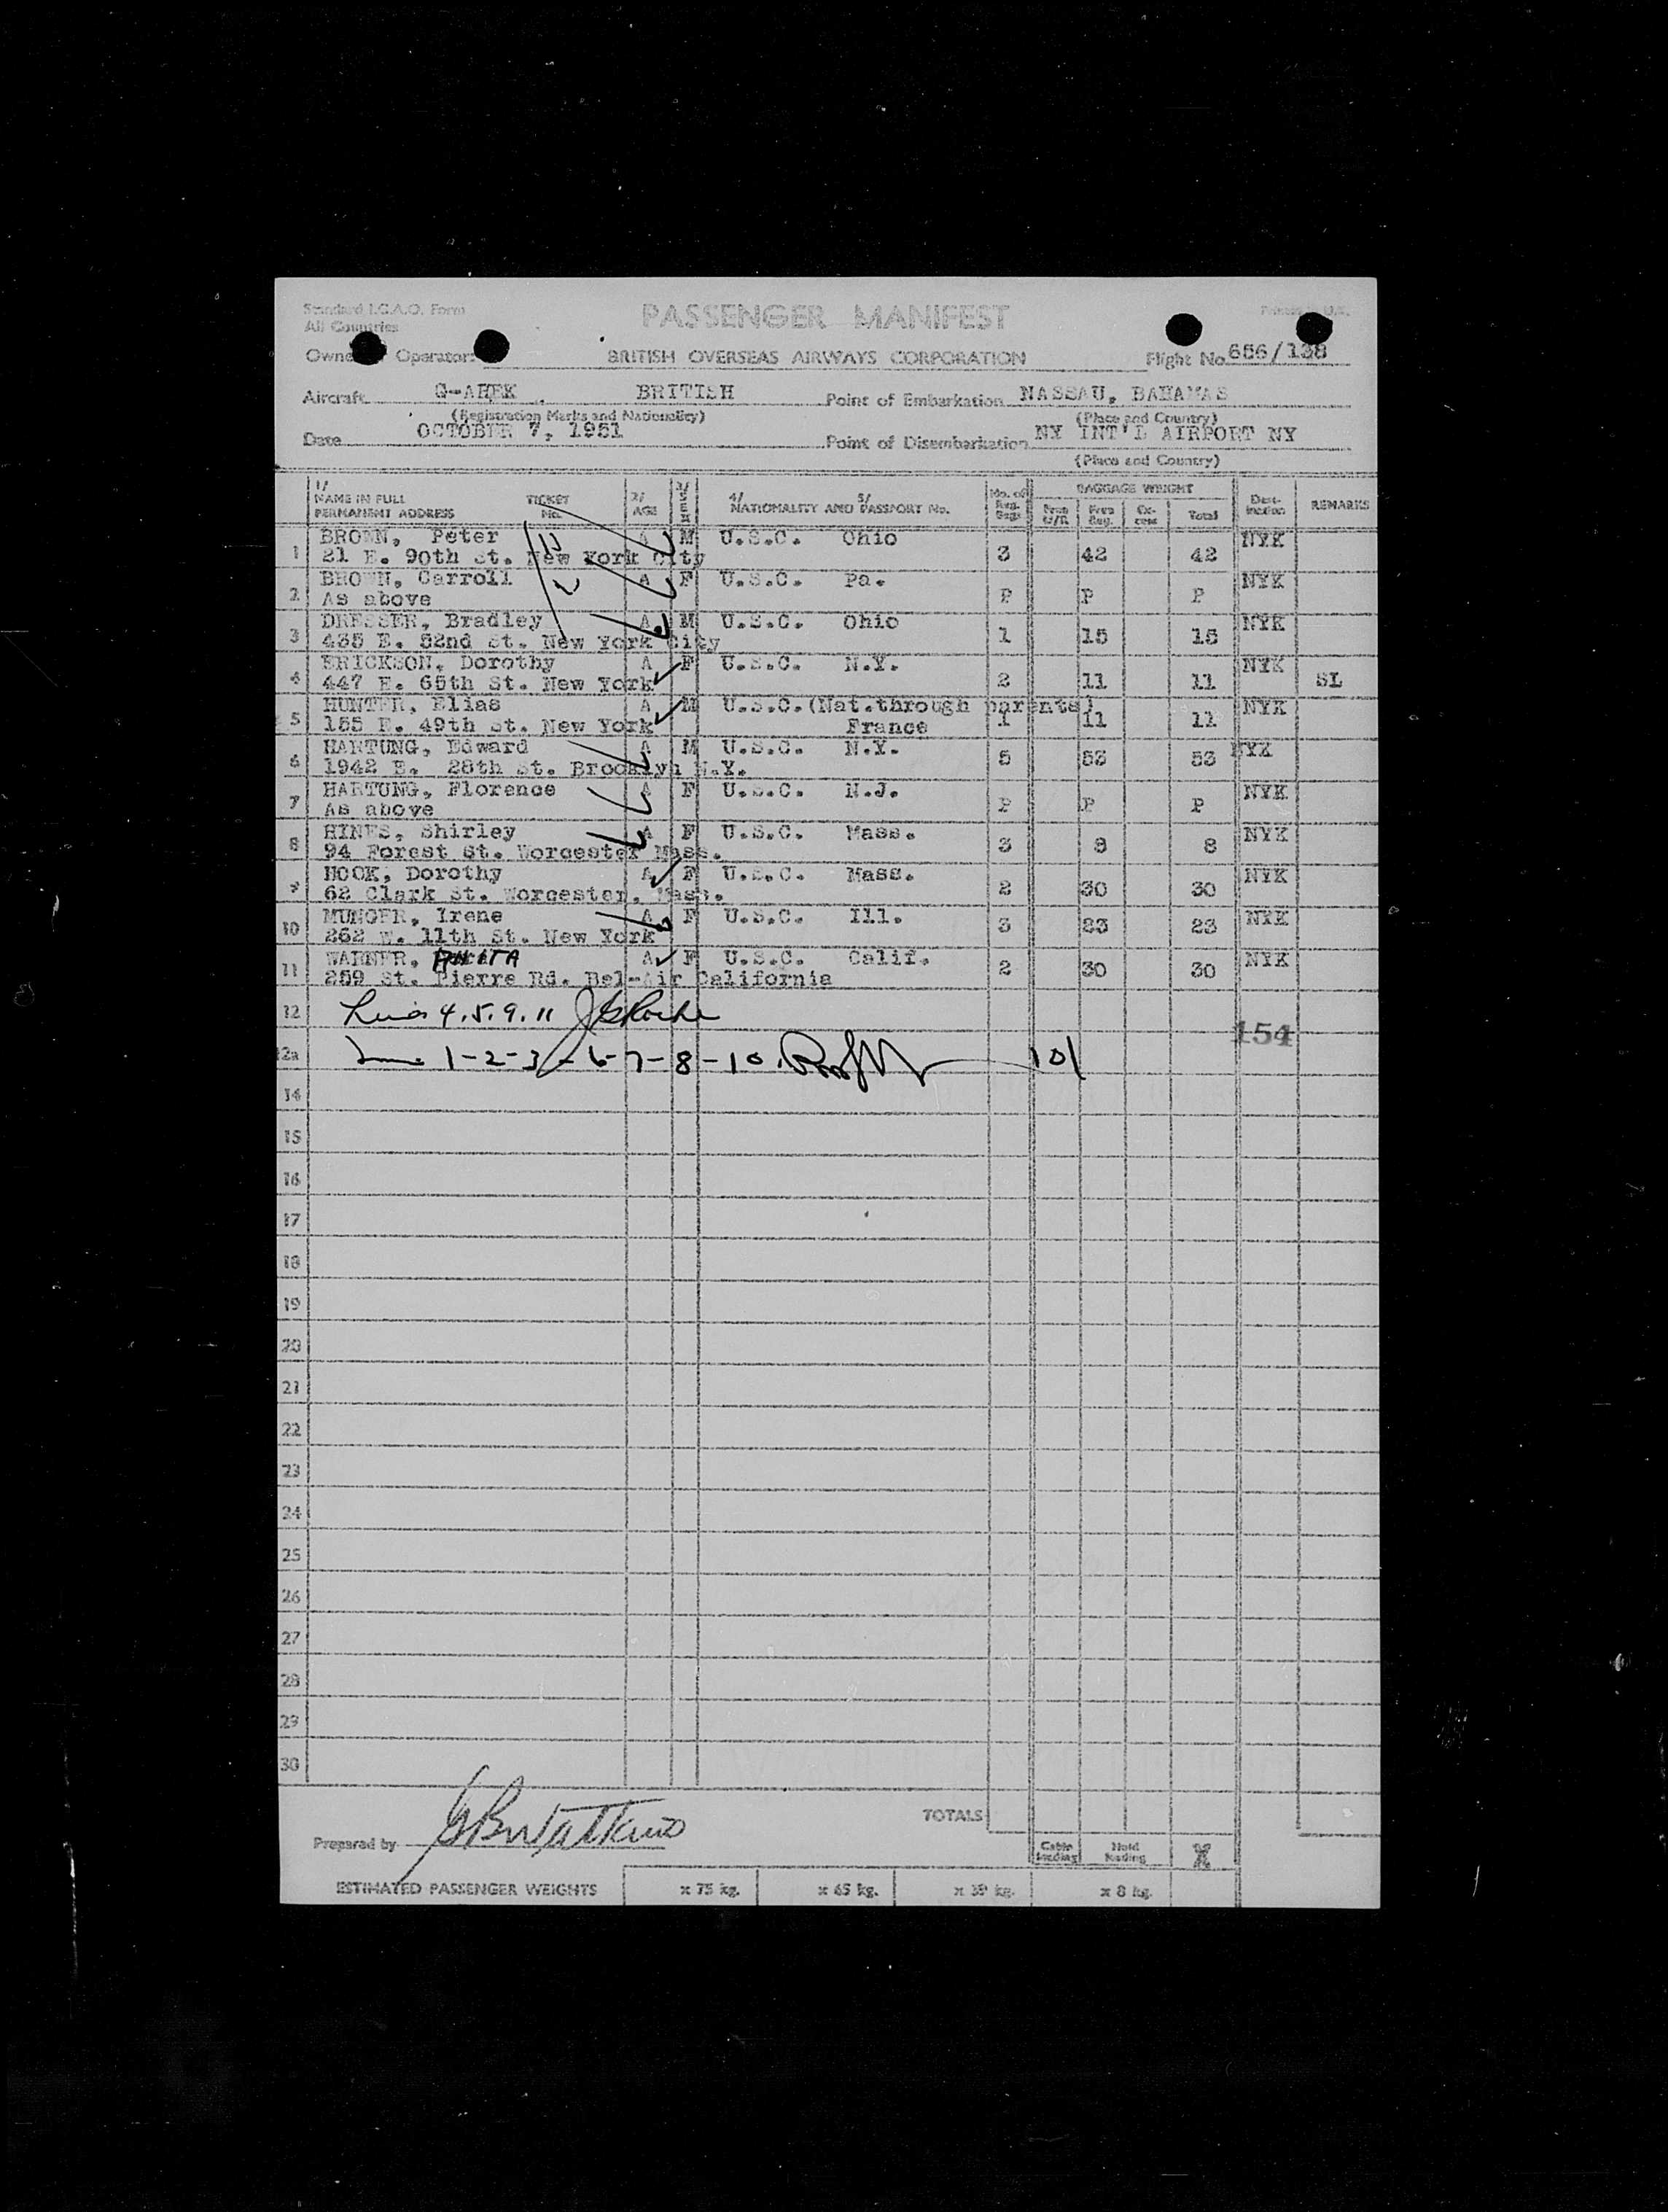 Standard I.C.A.O. Form
All Countries
PASSENGER MANIFEST
Operator BRITISH OVERSEAS AIRWAYS CORPORATION Flight No. 656/138
Aircraft BRITISH Point of Embarkation NASSAU, BAHAMAS
(Registration Marks and Nationality) (Place and Country)
Date OCTOBER 7, 1951 Point of Disembarkation NY INT'L AIRPORT NY
(Place and Country)
1/ NAME IN FULL PERMANENT ADDRESS TICKET No. 2/ AGE 3/ SEX 4/ NATIONALITY AND 5/ PASSPORT No. No. of Reg. Bags BAGGAGE WEIGHT Free Reg. Ex-cess Total Dest-ination REMARKS
1 BROWN, Peter A M U.S.C. Ohio 3 42 42 NYK
21 E. 90th St. New York City
2 BROWN, Carroll A F U.S.C. Pa. P P P NYK
As above
3 DRESSER, Bradley A M U.S.C. Ohio 1 15 15 NYK
435 E. 52nd St. New York City
4 ERICKSON, Dorothy A F U.S.C. N.Y. 2 11 11 NYK SL
447 E. 65th St. New York
5 HUNTER, Elias A M U.S.C. (Nat.through parents) 1 11 11 NYK
155 E. 49th St. New York France
6 HARTUNG, Edward A M U.S.C. N.Y. 5 53 53 NYK
1942 E. 28th St. Brooklyn N.Y.
7 HARTUNG, Florence A F U.S.C. N.J. P P P NYK
As above
8 HINES, Shirley A F U.S.C. Mass. 3 8 8 NYK
94 Forest St. Worcester Mass.
9 HOOK, Dorothy A F U.S.C. Mass. 2 30 30 NYK
62 Clark St. Worcester, Mass.
10 MUNGER, Irene A F U.S.C. Ill. 3 23 23 NYK
262 W. 11th St. New York
11 WARNER, ANITA A F U.S.C. Calif. 2 30 30 NYK
259 St. Pierre Rd. Bel-Air California
12 4.5.9.11
154
12a 1-2-3-6-7-8-10. 101
14
15
16
17
18
19
20
21
22
23
24
25
26
27
28
29
30
TOTALS
Prepared by
Cabin loading Hold loading
ESTIMATED PASSENGER WEIGHTS x 75 kg. x 65 kg. x 39 kg. x 8 kg.